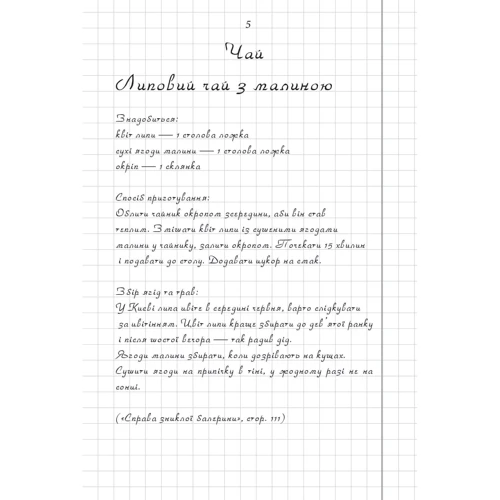 5
Чай
Липовий чай з малиною
Знадобиться:
квіт липи — 1 столова ложка
сухі ягоди малини — 1 столова ложка
окріп — 1 склянка
Спосіб приготування:
Облити чайник окропом зсередини, аби він став
теплим. Змішати квіт липи із сушеними ягодами
малини у чайнику, залити окропом. Почекати 15 хвилин
і подавати до столу. Додавати цукор на смак.
Збір ягід та трав:
У Києві липа цвіте в середині червня, варто слідкувати
за цвітінням. Цвіт липи краще збирати до дев'ятої ранку
і після шостої вечора — так радив дід.
Ягоди малини збирати, коли дозрівають на кущах.
Сушити ягоди на припічку в тіні, у жодному разі не на
сонці.
(«Справа зниклої балерини», стор. 111)